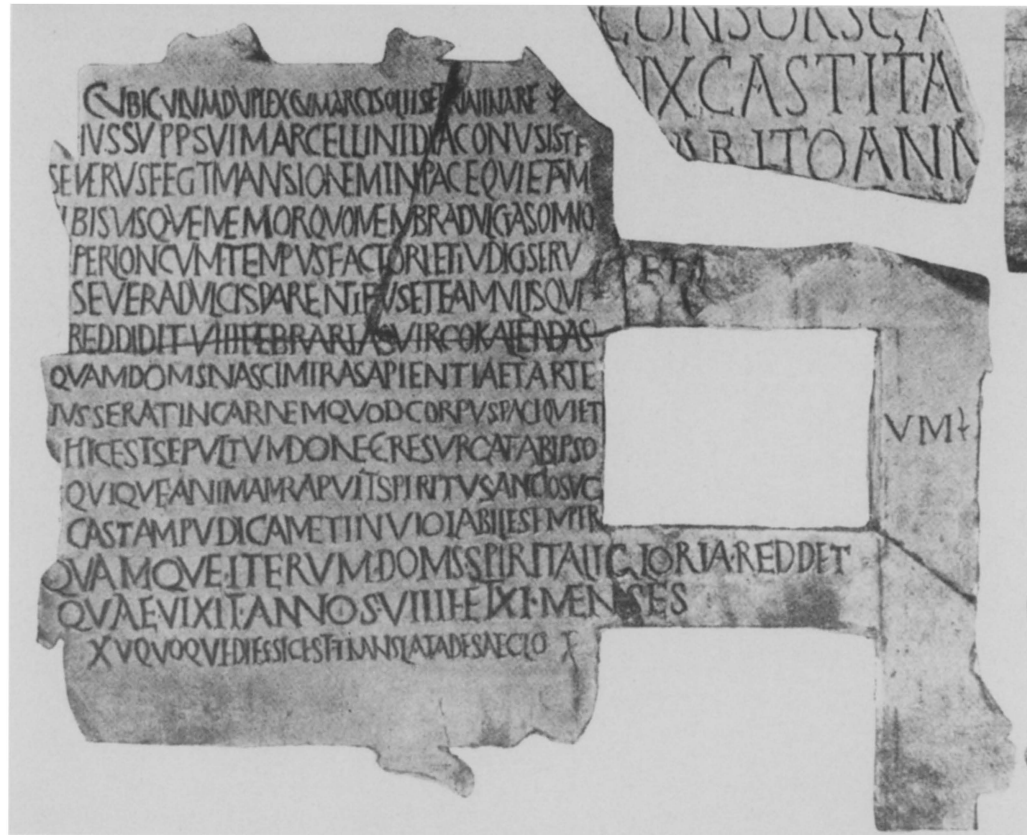 CONSORSCA
IX CASTITA
ARITO ANN
CVBICVLVM DVPLEX CVM ARCISOLIIS ET LVMINARE
IVSSV PP SVI MARCELLINI DIACONVS ISTE
SEVERVS FECIT MANSIONEM IN PACE QVIETAM
IBI SVISQVE MEMOR QVO MEMBRA DVLCIA SOMNO
PER LONCVM TEMPVS FACTORI ET IVDICI SERV
SEVERA DVLCIS PARENTIBVS ET FAMVLISQVE
REDDIDIT VIIII FEBRARIAS VIRCO KALENDAS
QVAM DOMS NASCI MIRA SAPIENTIA ET ARTE
IVSSERAT IN CARNEM QVOD CORPVS PACI QVIET
HIC EST SEPVLTVM DONEC RESVRCAT AB IPSO
QVIQVE ANIMAM RAPVIT SPIRITV SANCTO SVO
CASTAM PVDICAM ET INVIOLABILE SEMPER
QVAMQVE·ITERVM·DOMS SPIRITALI GLORIA·REDDET
QVAE·VIXIT·ANNOS·VIIII·ET·XI·MENSES
XV QVOQVE DIES SIC EST TRANSLATA DE SAECLO
VM